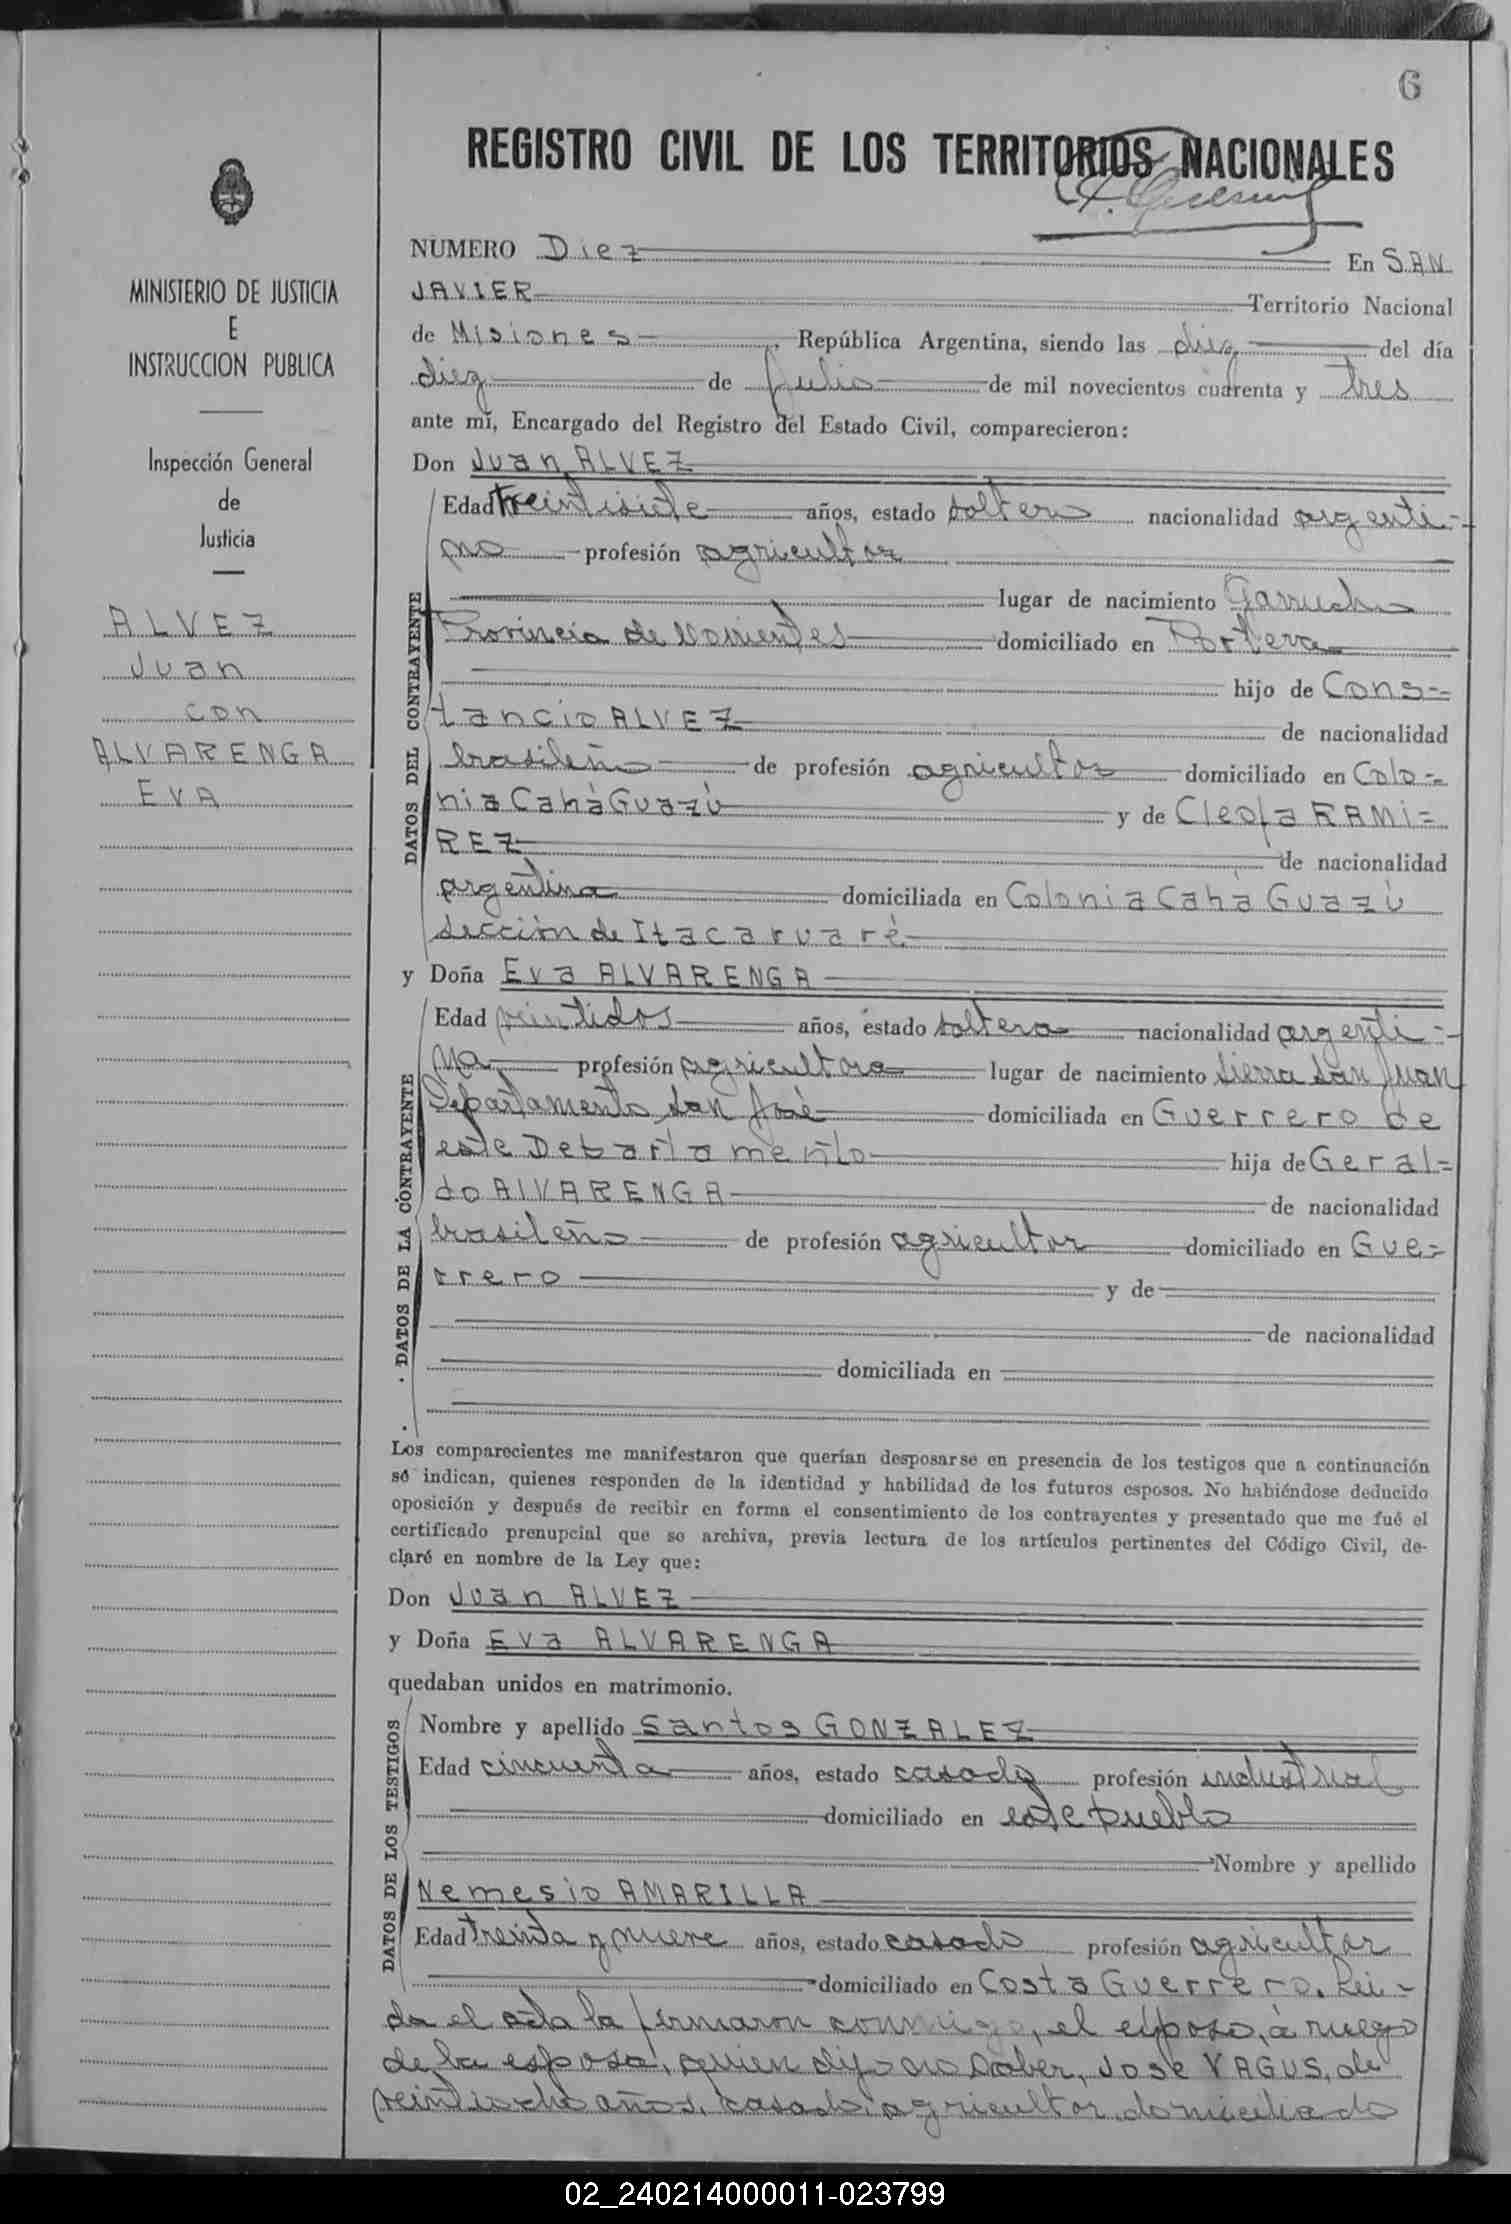 6
REGISTRO CIVIL DE LOS TERRITORIOS NACIONALES
MINISTERIO DE JUSTICIA
E
INSTRUCCION PUBLICA
Inspección General
de
Justicia
ALVEZ
Juan
con
ALVARENGA
Eva
NUMERO Diez En SAN
JAVIER Territorio Nacional
de Misiones, República Argentina, siendo las diez del día
diez de Julio de mil novecientos cuarenta y tres
ante mí, Encargado del Registro del Estado Civil, comparecieron:
Don Juan ALVEZ
DATOS DEL CONTRAYENTE
Edad treintisiete años, estado soltero nacionalidad argenti-
no profesión agricultor
lugar de nacimiento Garruchos
Provincia de Corrientes domiciliado en Portera
hijo de Cons=
tancio ALVEZ de nacionalidad
brasileño de profesión agricultor domiciliado en Colo=
nia Cahá Guazú y de Cleofa RAMI=
REZ de nacionalidad
argentina domiciliada en Colonia Cahá Guazú
sección de Itacaruaré
y Doña Eva ALVARENGA
DATOS DE LA CONTRAYENTE
Edad veintidos años, estado soltera nacionalidad argenti=
na profesión agricultora lugar de nacimiento Sierra San Juan
Departamento San José domiciliada en Guerrero de
este Departamento hija de Geral=
do ALVARENGA de nacionalidad
brasileño de profesión agricultor domiciliado en Gue=
rrero y de
de nacionalidad
domiciliada en
Los comparecientes me manifestaron que querían desposarse en presencia de los testigos que a continuación
se indican, quienes responden de la identidad y habilidad de los futuros esposos. No habiéndose deducido
oposición y después de recibir en forma el consentimiento de los contrayentes y presentado que me fué el
certificado prenupcial que se archiva, previa lectura de los artículos pertinentes del Código Civil, de-
claré en nombre de la Ley que:
Don Juan ALVEZ
y Doña Eva ALVARENGA
quedaban unidos en matrimonio.
DATOS DE LOS TESTIGOS
Nombre y apellido Santos GONZALEZ
Edad cincuenta años, estado casado profesión industrial
domiciliado en este pueblo
Nombre y apellido
Nemesio AMARILLA
Edad treinta y nueve años, estado casado profesión agricultor
domiciliado en Costa Guerrero. Lei-
da el acta la firmaron conmigo, el esposo, á ruego
de la esposa, quien dijo no saber, José VAGUS, de
veintiocho años, casado, agricultor, domiciliado
02_240214000011-023799